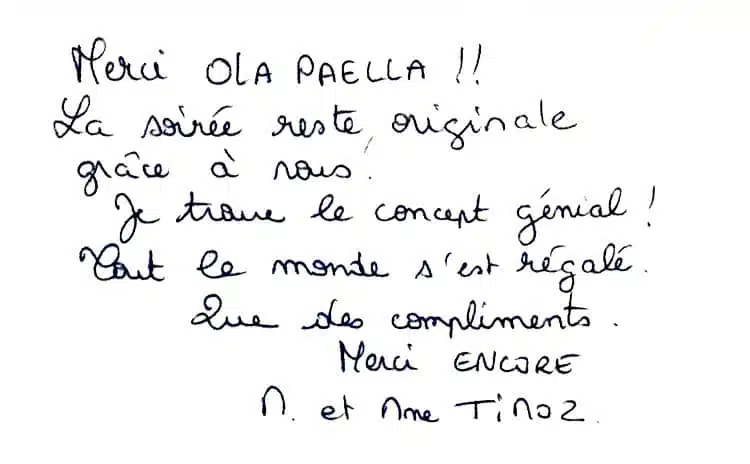 Merci OLA PAELLA !!
La soirée reste originale
grâce à vous !
Je trouve le concept génial !
Tout le monde s'est régalé.
Que des compliments.
Merci ENCORE
M. et Mme TiNOZ.